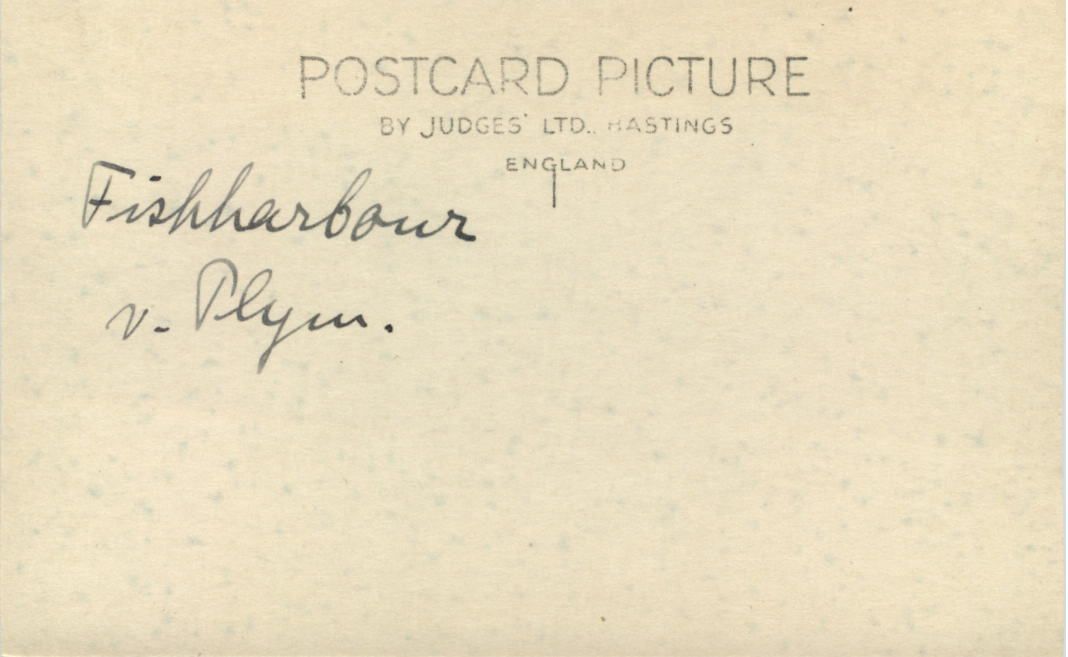 POSTCARD PICTURE
BY JUDGES' LTD., HASTINGS
ENGLAND
Fishharbour
v. Plym.